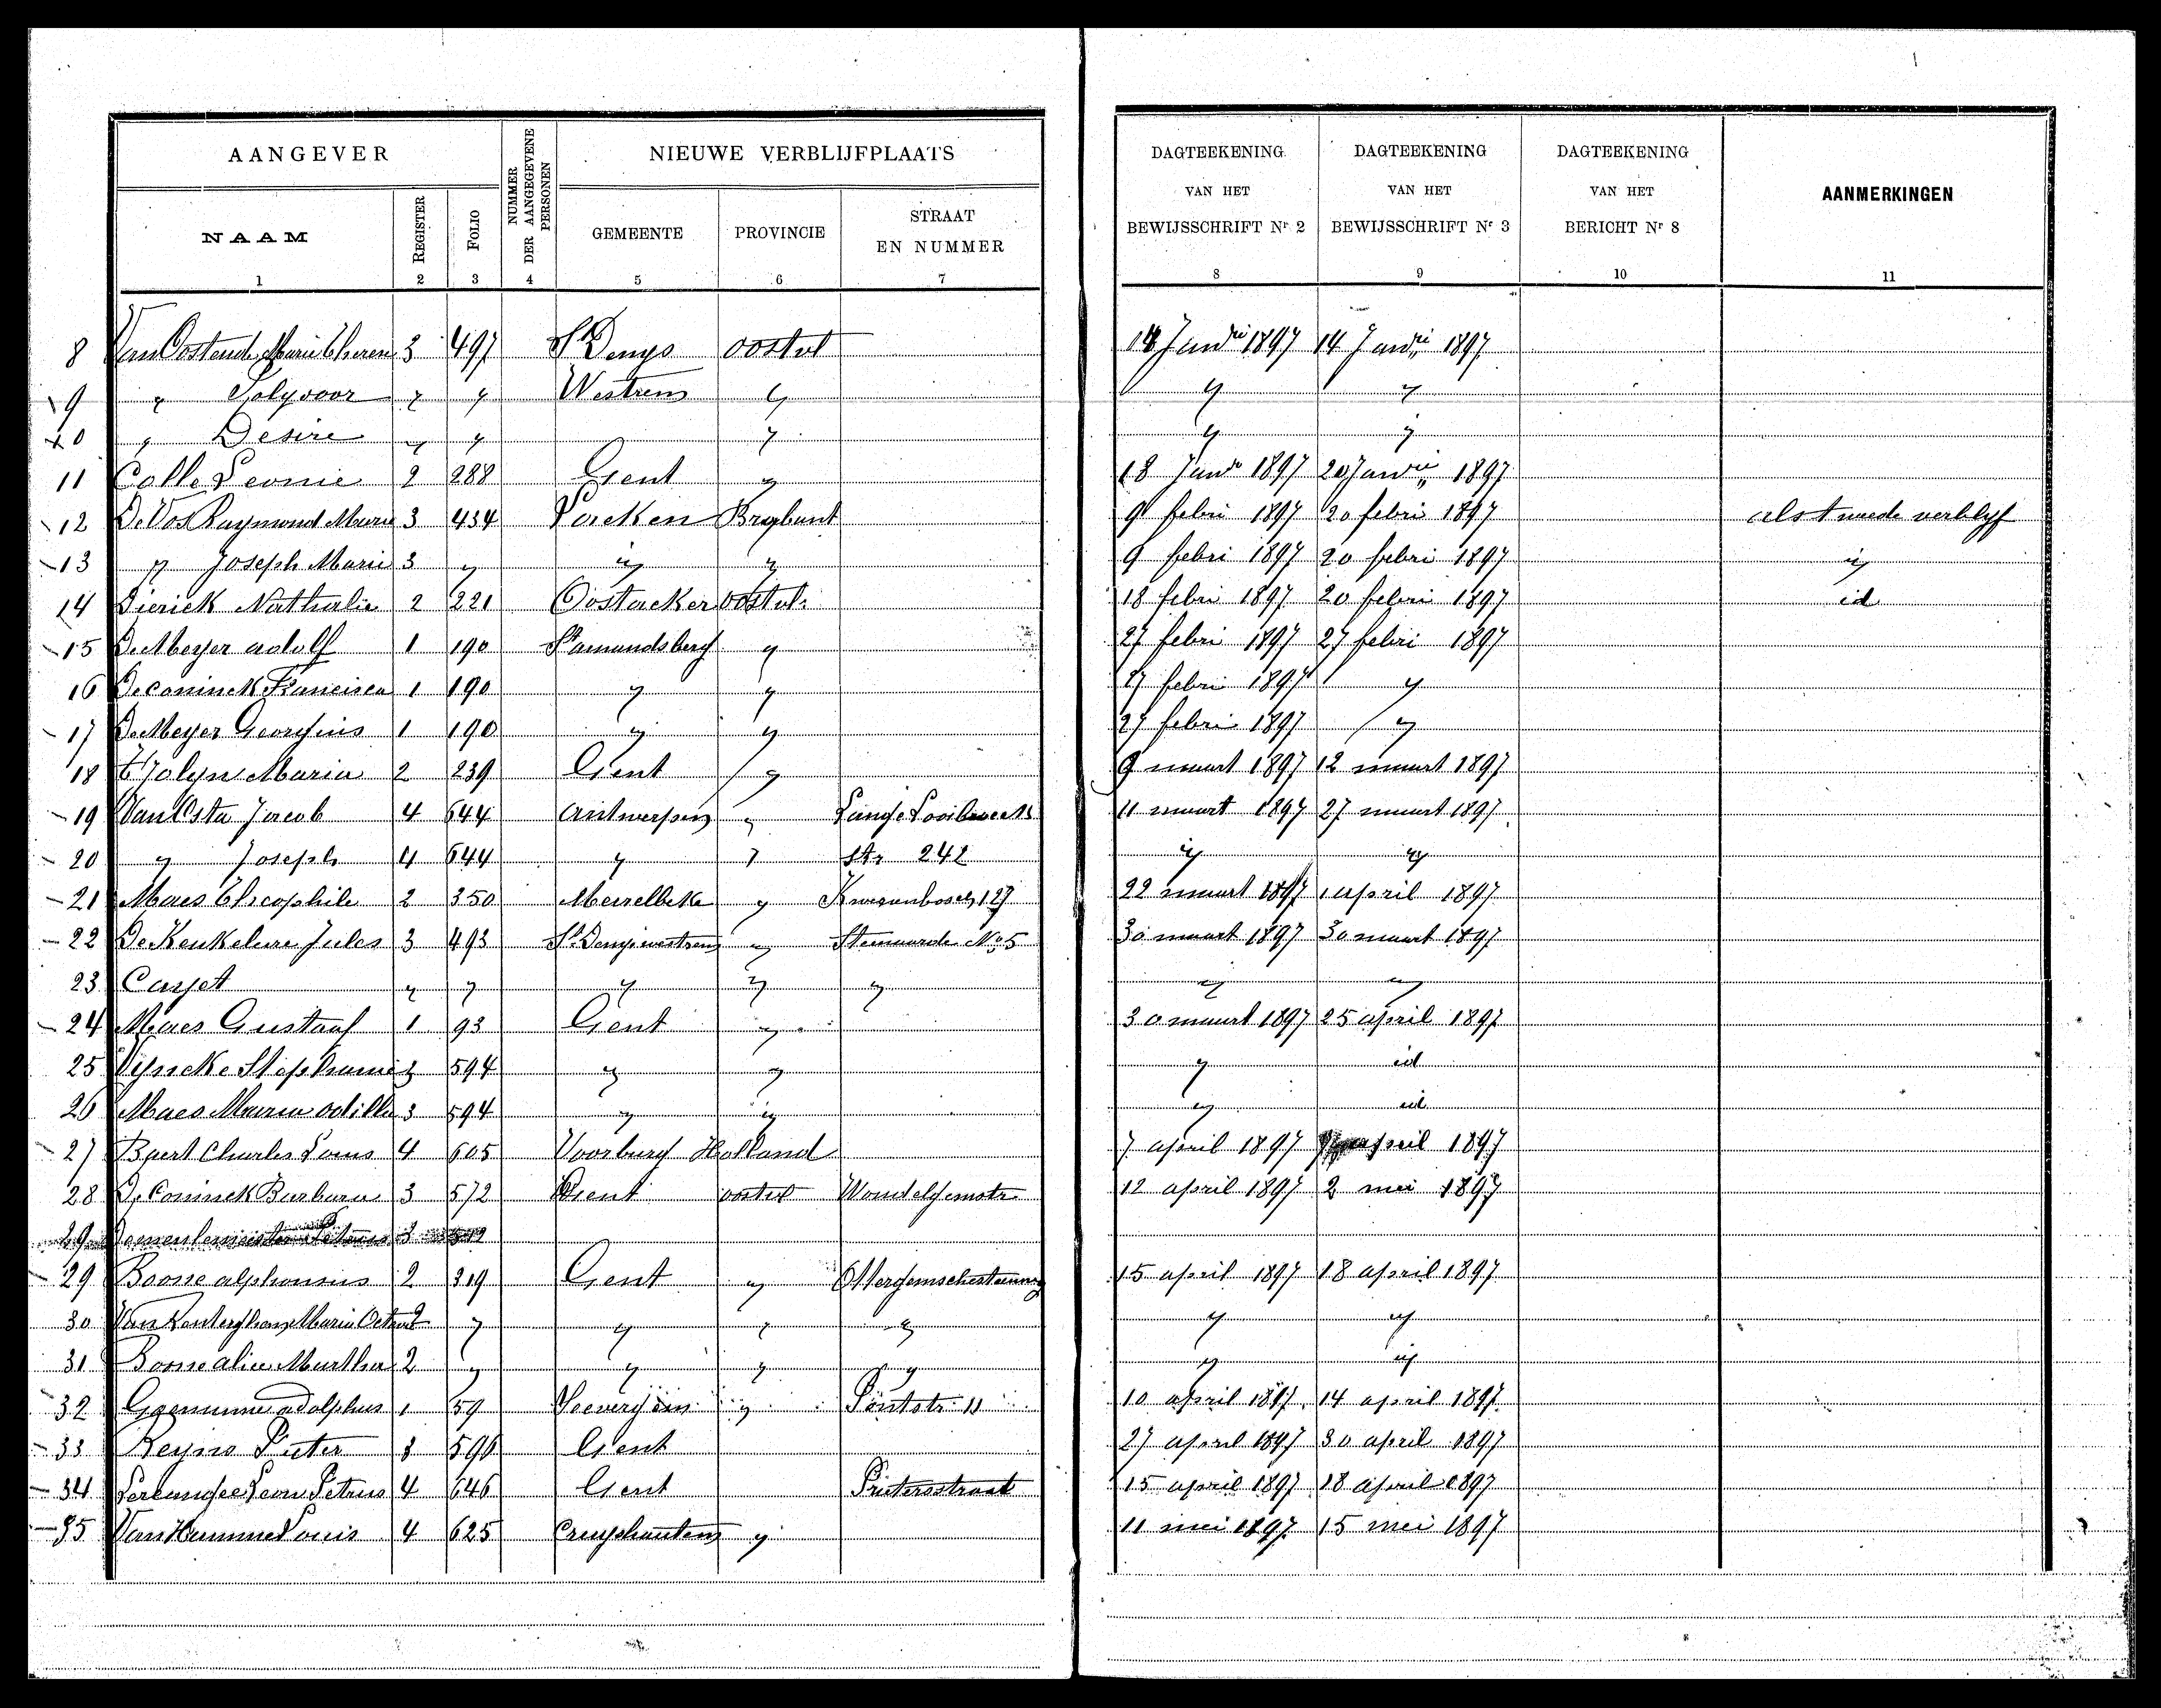 AANGEVER
NUMMER DER AANGEGEVENE PERSONEN
NIEUWE VERBLIJFPLAATS
DAGTEEKENING VAN HET BEWIJSSCHRIFT Nr 2
DAGTEEKENING VAN HET BEWIJSSCHRIFT Nr 3
DAGTEEKENING VAN HET BERICHT Nr 8
AANMERKINGEN
NAAM REGISTER FOLIO GEMEENTE PROVINCIE STRAAT EN NUMMER
1 2 3 4 5 6 7 8 9 10 11
8 Van Oostende Marie 3 497 St Denys oostvl 14 1897 14 1897
9 " " " Westrem " " "
10 " Desire " " " " "
11 Calle Leonie 2 288 Gent " 18 1897 20 1897
12 De Vos Raymond Marie 3 434 Laeken Brabant 9 febri 1897 20 febri 1897 als tweede verblyf
13 " Joseph Marie 3 " " " 9 febri 1897 20 febri 1897 "
14 Dierick Nathalie 2 221 Oostacker oostvl. 18 febri 1897 20 febri 1897 id
15 De Meyer adolf 1 190 St amandsberg " 27 febri 1897 27 febri 1897
16 De Coninck Francisca 1 190 " " 27 febri 1897 "
17 De Meyer Georgius 1 190 " " 27 febri 1897 "
18 Maria 2 239 Gent " 9 maart 1897 12 maart 1897
19 Van Jacob 4 644 Antwerpen " Lange 11 maart 1897 27 maart 1897
20 " Joseph 4 644 " " str 242 " "
21 Maes Theophile 2 350 Meirelbeke " 127 22 maart 1897 1 april 1897
22 De Keukeleire Jules 3 493 St Denijs westrem " No 5 30 maart 1897 30 maart 1897
23 " " " " " " "
24 Maes Gustaaf 1 93 Gent " 30 maart 1897 25 april 1897
25 Stephanie 3 594 " " " id
26 Maes Maria odille 3 594 " " " id
27 Baert Charles Louis 4 605 Voorburg Holland 7 april 1897 april 1897
28 De Coninck Barbara 3 572 Gent oostvl 12 april 1897 2 mei 1897
29 Petrus 3
29 Boone alphonsius 2 319 Gent " 15 april 1897 18 april 1897
30 Van Maria 2 " " " " " "
31 Boone alice Martha 2 " " " " " "
32 adolphus 1 59 " 11 10 april 1897 14 april 1897
33 Pieter 3 590 Gent 27 april 1897 30 april 1897
34 Leon Petrus 4 646 Gent 15 april 1897 18 april 1897
35 Van Hamme Louis 4 625 Cruyshautem " 11 mei 1897 15 mei 1897